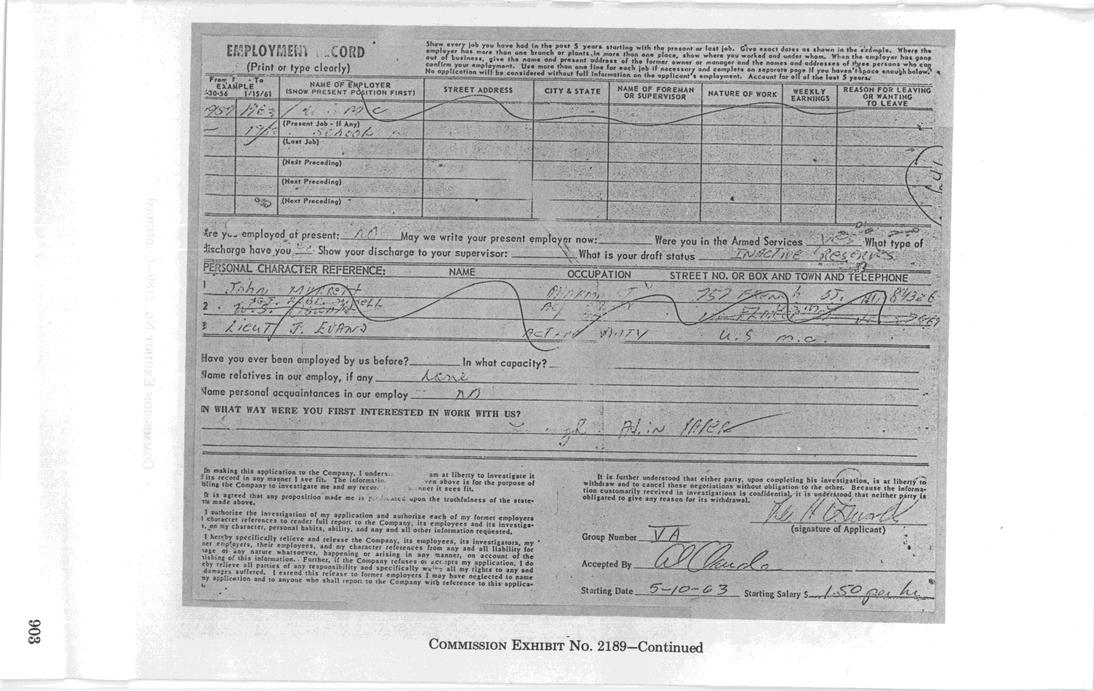 EMPLOYMENT RECORD
(Print or type clearly)
Show every job you have had in the past 5 years starting with the present or last job. Give exact dates as shown in the example. Where the
employer has more than one branch or plants, in more than one place, show where you worked and under whom. When the employer has gone
out of business, give the name and present address of the former owner or manager and the names and addresses of three persons who can
confirm your employment. Use more than one line for each job if necessary and complete on separate page if you haven't space enough below.
No application will be considered without full information on the applicant's employment. Account for all of the last 5 years.
From - To
EXAMPLE
1/15/61
NAME OF EMPLOYER
(SHOW PRESENT POSITION FIRST)
STREET ADDRESS
CITY & STATE
NAME OF FOREMAN
OR SUPERVISOR
NATURE OF WORK
WEEKLY
EARNINGS
REASON FOR LEAVING
OR WANTING
TO LEAVE
(Present Job - If Any)
(Last Job)
(Next Preceding)
(Next Preceding)
(Next Preceding)
Are you employed at present: NO May we write your present employer now: Were you in the Armed Services YES What type of
discharge have you Show your discharge to your supervisor: What is your draft status INACTIVE RESERVES
PERSONAL CHARACTER REFERENCE: NAME OCCUPATION STREET NO. OR BOX AND TOWN AND TELEPHONE
1 John 757 ST.
2.
3 LIEUT J. EVANS ACTIVE DUTY U.S M.C.
Have you ever been employed by us before? In what capacity?
Name relatives in our employ, if any None
Name personal acquaintances in our employ NO
IN WHAT WAY WERE YOU FIRST INTERESTED IN WORK WITH US?
PAPER
In making this application to the Company, I am at liberty to investigate it
its record in any manner I see fit. The given above is for the purpose of
the Company to investigate me and my manner it sees fit.
It is agreed that any proposition made me is upon the truthfulness of the state-
made above.
I authorize the investigation of my application and authorize each of my former employers
character references to render full report to the Company, its employees and its investiga-
on my character, personal habits, ability, and any and all other information requested.
I hereby specifically relieve and release the Company, its employees, its investigators, my
employers, their employees, and my character references from any and all liability for
of any nature whatsoever, happening or arising in any manner, on account of the
of this information. Further, if the Company refuses or accepts my application, I do
relieve all parties of any responsibility and specifically my rights to any and all
damages suffered. I extend this release to former employers I may have neglected to name
my application and to anyone who shall report to the Company with reference to this applica-
It is further understood that either party, upon completing his investigation, is at liberty to
withdraw and to cancel these negotiations without obligation to the other. Because the informa-
tion customarily received in investigations is confidential, it is understood that neither party is
obligated to give any reason for its withdrawal.
(signature of Applicant)
Group Number VA
Accepted By
Starting Date 5-10-63 Starting Salary $ 1.50 per hr
903
COMMISSION EXHIBIT NO. 2189—Continued